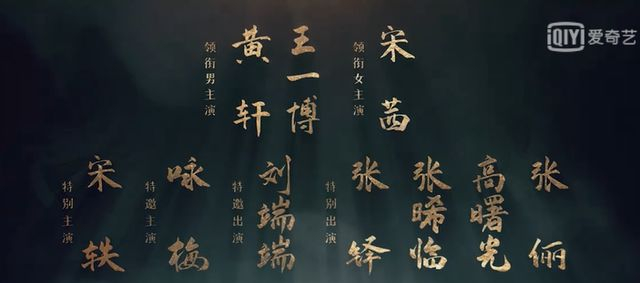 领衔男主演
黄轩
王一博
领衔女主演
宋茜
特别主演
宋轶
特邀主演
咏梅
特邀出演
刘端端
特别出演
张铎
张晞临
高曙光
张俪
iQIYI 爱奇艺